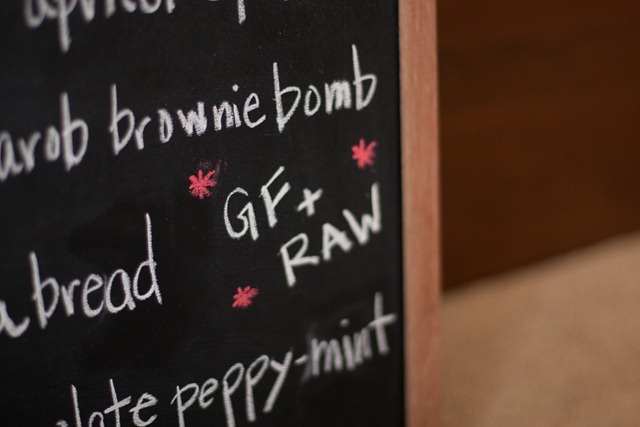 arob brownie bomb
GF +
RAW
a bread
late peppy-mint